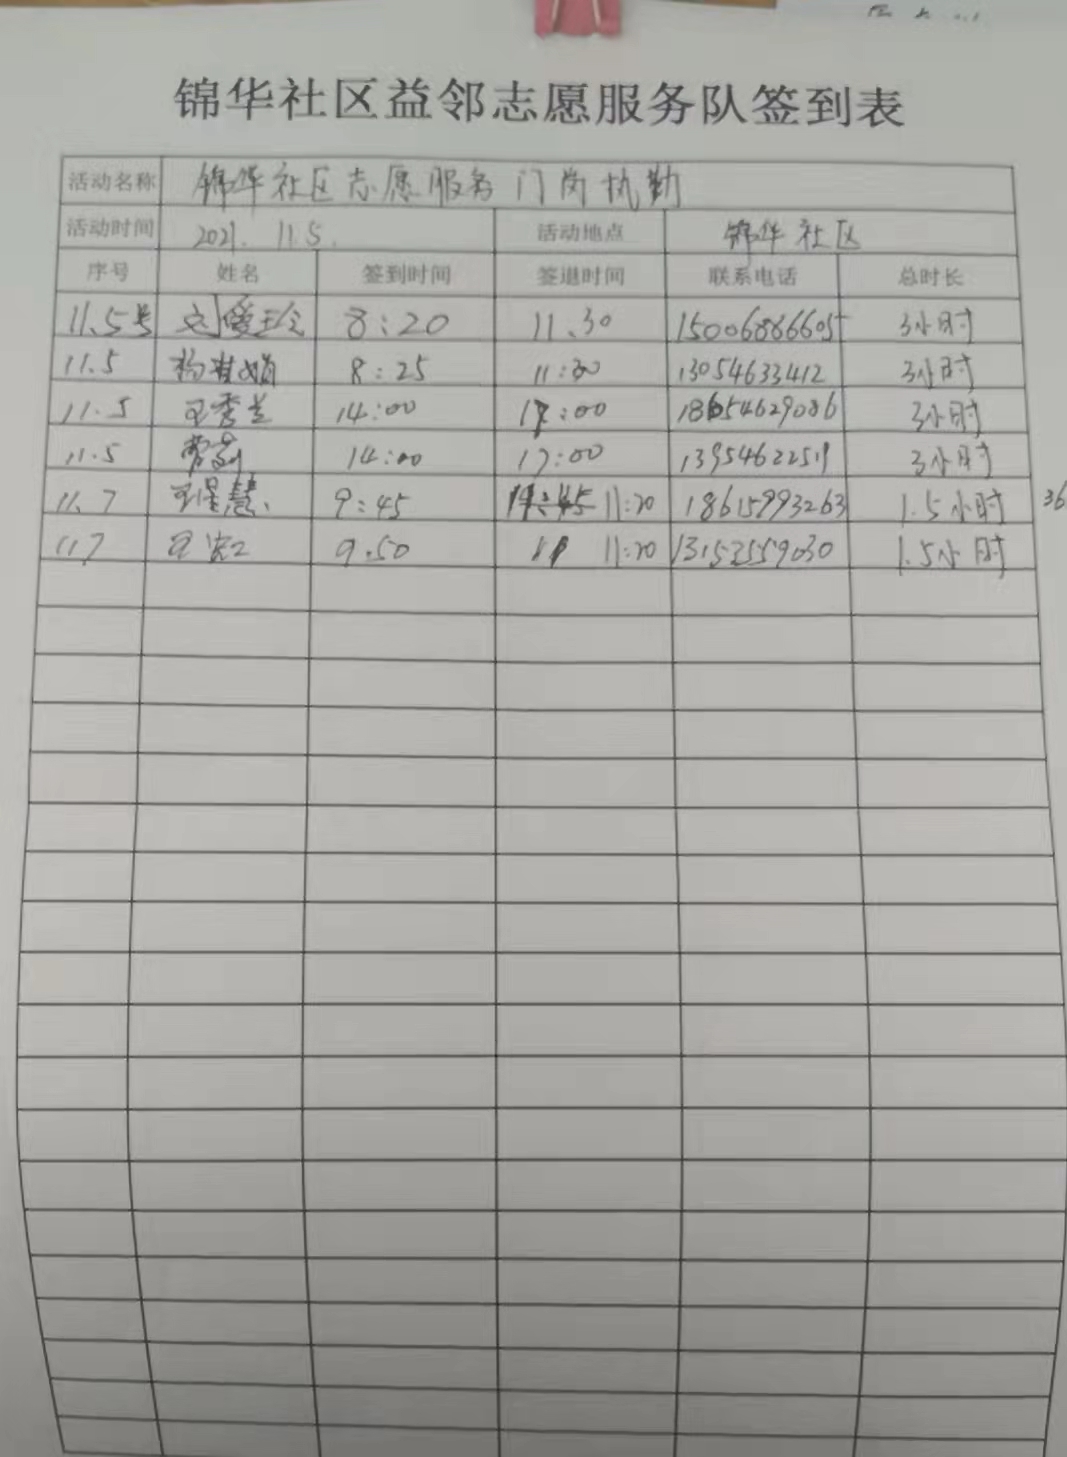 锦华社区益邻志愿服务队签到表
活动名称 锦华社区志愿服务门岗执勤
活动时间 2021. 11.5. 活动地点 锦华社区
序号 姓名 签到时间 签退时间 联系电话 总时长
11.5号 刘爱玲 8:20 11.30 15006886605 3小时
11.5 杨淇娟 8:25 11:30 13054633412 3小时
11.5 王秀兰 14:00 17:00 18654629086 3小时
11.5 14:00 17:00 13954622519 3小时
11.7 慧 9:45 11:20 18615993263 1.5小时 36
11.7 9.50 11:20 13152559030 1.5小时